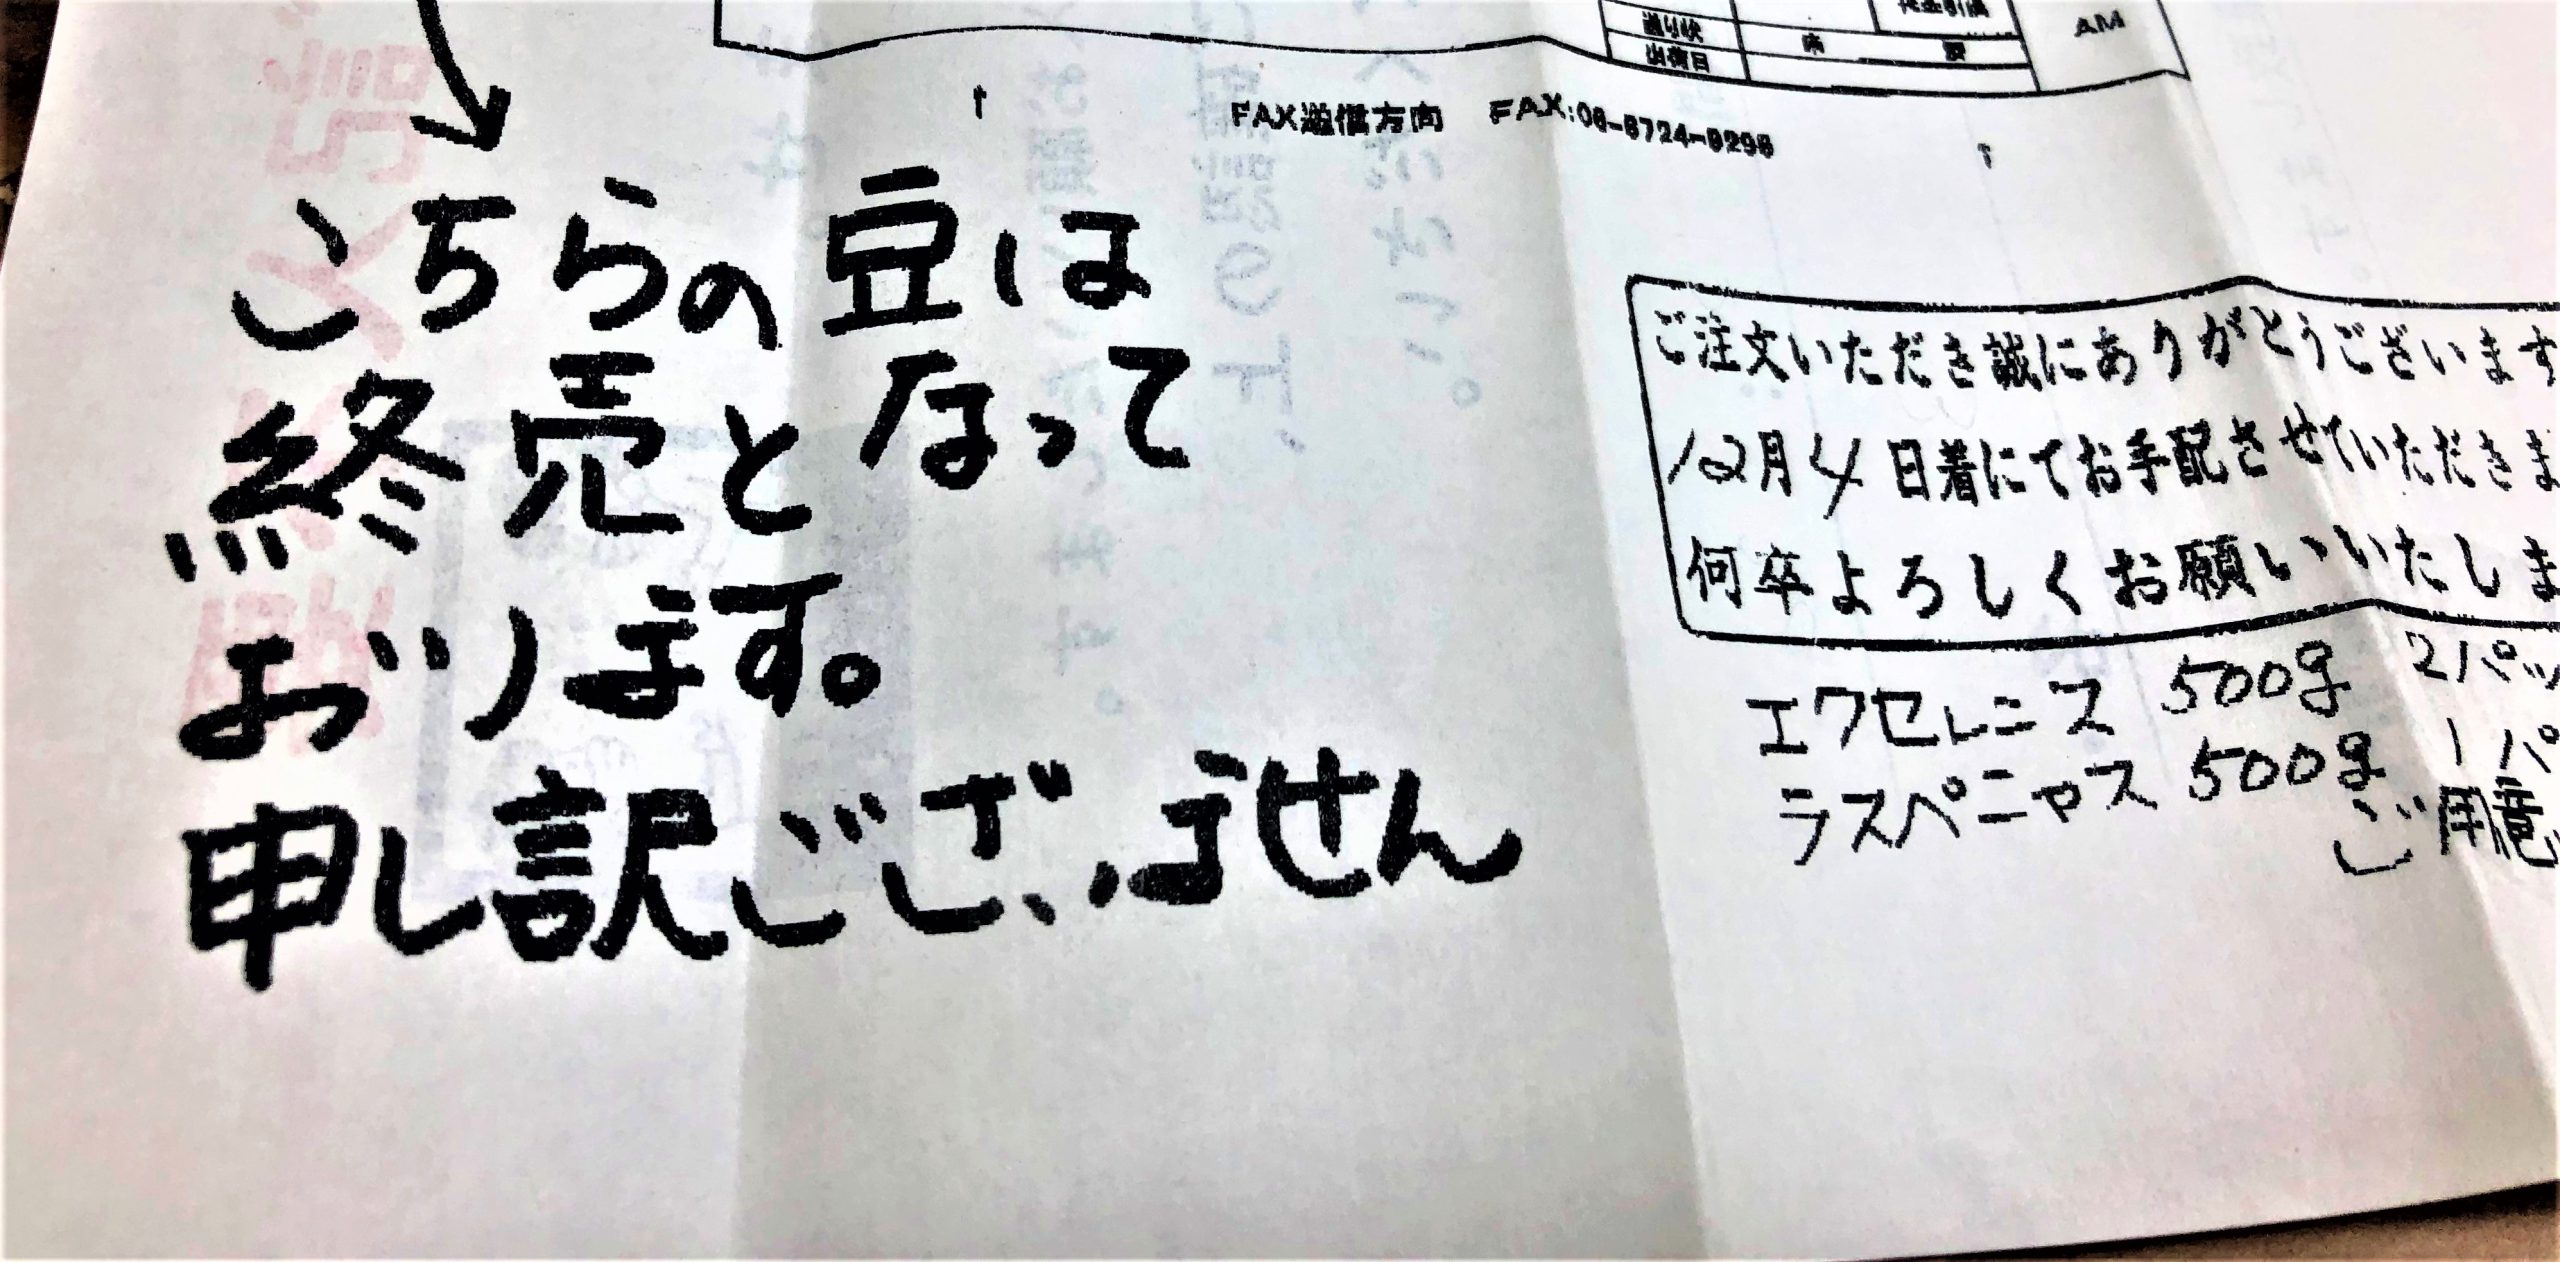 送り状
出荷日
AM
FAX送信方向 FAX:06-6724-9296
こちらの豆は
終売となって
おります。
申し訳ございません
ご注文いただき誠にありがとうございます
12月4日着にてお手配させていただきま
何卒よろしくお願いいたしま
エクセレニス 500g 2パッ
ラスペニャス 500g 1パ
ご用意